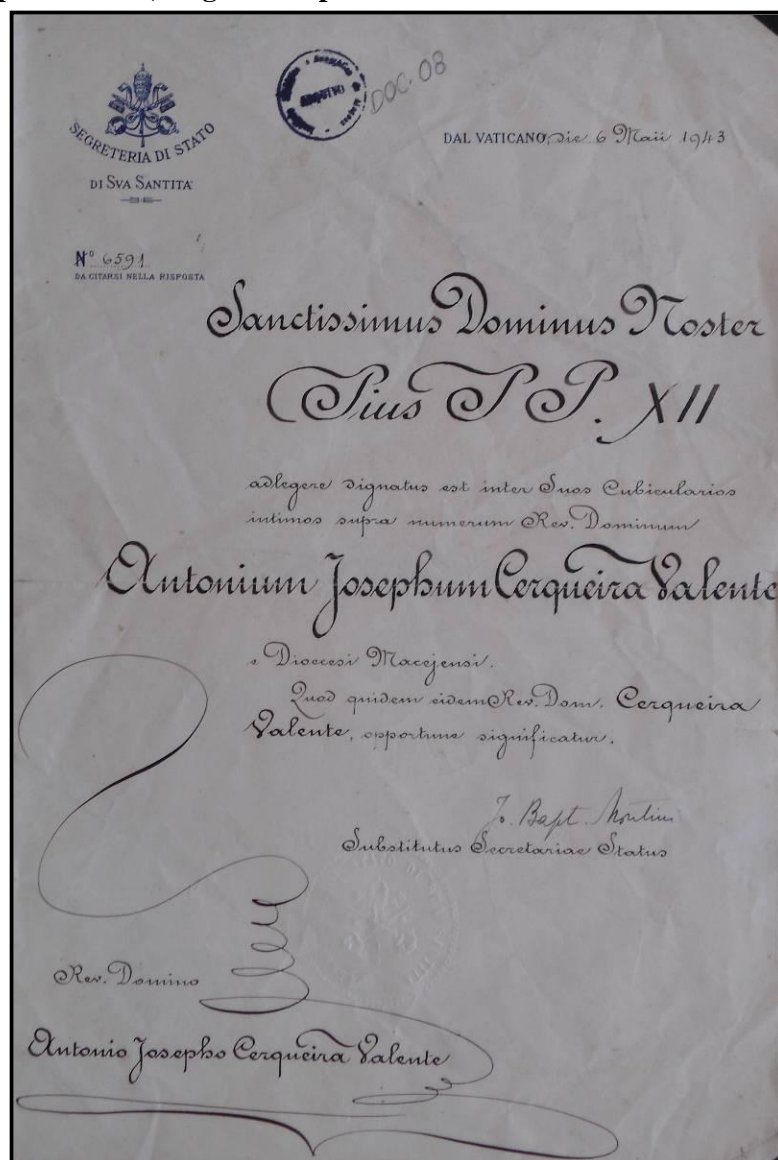 SEGRETERIA DI STATO
DI SVA SANTITA'
ARQUIVO
DOC-08
DAL VATICANO, die 6 Maii 1943
Nº 6591
DA CITARSI NELLA RISPOSTA
Sanctissimus Dominus Noster
Pius PP. XII
adlegere dignatus est inter Suos Cubicularios
intimos supra numerum Rev. Dominum
Antonium Josephum Cerqueira Valente
e Dioecesi Macejensi.
Quod quidem eidem Rev. Dom. Cerqueira
Valente, opportune significatur.
Jo. Bapt. Montini
Substitutus Secretariae Status
Rev. Domino
Antonio Josepho Cerqueira Valente